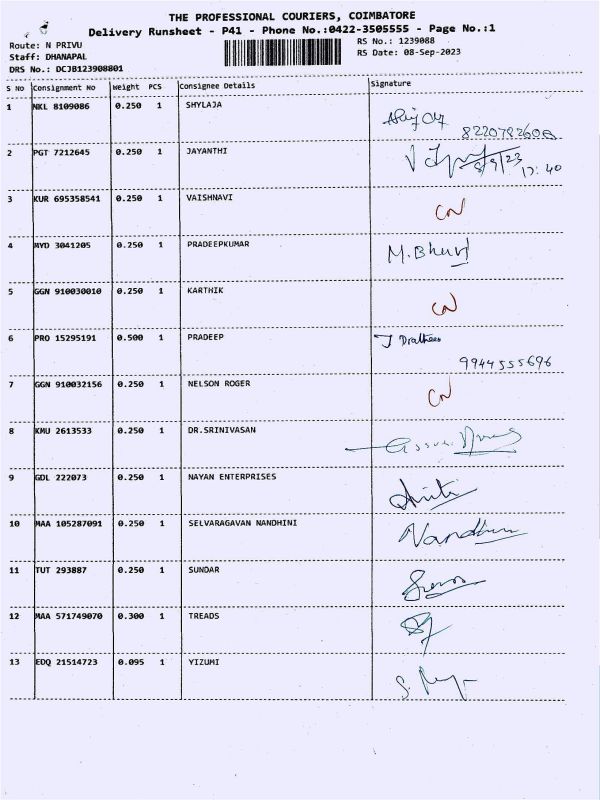 THE PROFESSIONAL COURIERS, COIMBATORE
Delivery Runsheet - P41 - Phone No.:0422-3505555 - Page No.:1
Route: N PRIVU
RS No.: 1239088
Staff: DHANAPAL
RS Date: 08-Sep-2023
DRS No.: DCJB123908801
S No Consignment No Weight PCS Consignee Details Signature
1 NKL 8109086 0.250 1 SHYLAJA
2 PGT 7212645 0.250 1 JAYANTHI
8/9/23
17:40
3 KUR 695358541 0.250 1 VAISHNAVI CN
4 MYD 3041205 0.250 1 PRADEEPKUMAR M.Bhuvi
5 GGN 910030010 0.250 1 KARTHIK CN
6 PRO 15295191 0.500 1 PRADEEP
9944555696
7 GGN 910032156 0.250 1 NELSON ROGER CN
8 KMU 2613533 0.250 1 DR.SRINIVASAN
9 GDL 222073 0.250 1 NAYAN ENTERPRISES
10 MAA 105287091 0.250 1 SELVARAGAVAN NANDHINI
11 TUT 293887 0.250 1 SUNDAR
12 MAA 571749070 0.300 1 TREADS
13 EDQ 21514723 0.095 1 YIZUMI